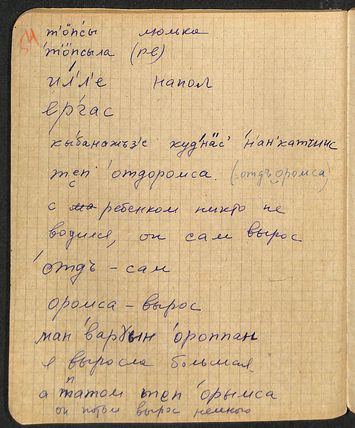 54
т'ӧп'сы люлька
'т'ӧп'сыла (ре)
и'л'л'е напол
ер'гас
кы'банажъз'е худ'нӓс' 'н'ан'катчиис
теп 'отдоромса. (отдъ оромса)
с ребенком никто не
водился, он сам вырос
'отдъ – сам
оромса – вырос
ман 'варӷын 'ороппан
я выросла большая
а патом теп 'орымса
он потом вырос немного